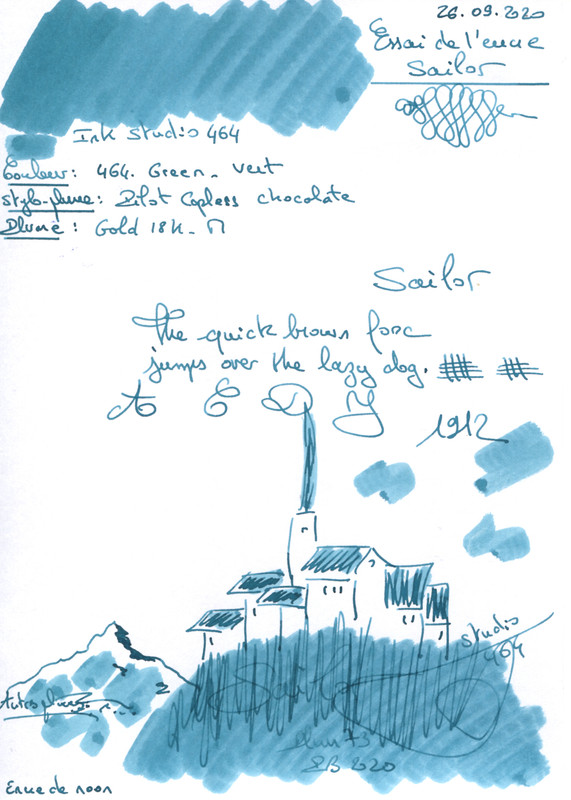 26.09.2020
Essai de l'encre
Sailor
Ink Studio 464
Couleur: 464. Green - vert
Stylo-plume: Pilot Capless chocolate
Plume: Gold 18K - M
Sailor
The quick brown fox
jumps over the lazy dog.
A E D Y
1912
studio
464
Sailor
2020
Autres
Encre de